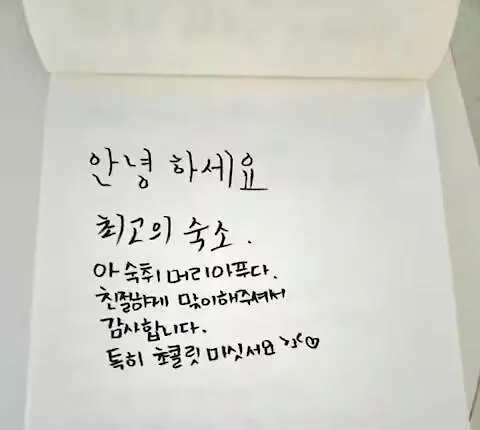 안녕 하세요
최고의 숙소.
아 숙취 머리아푸다.
친절하게 맞이해주셔서
감사합니다.
특히 쵸콜릿 미싯서요